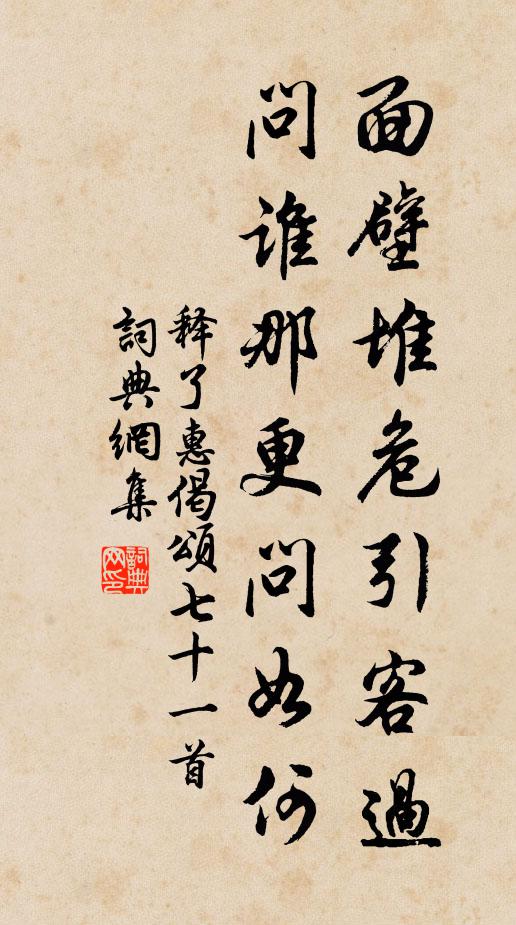 面壁堆危引客過
問誰那更問如何
释了惠偈頌七十一首
詞典網集
詞典網印